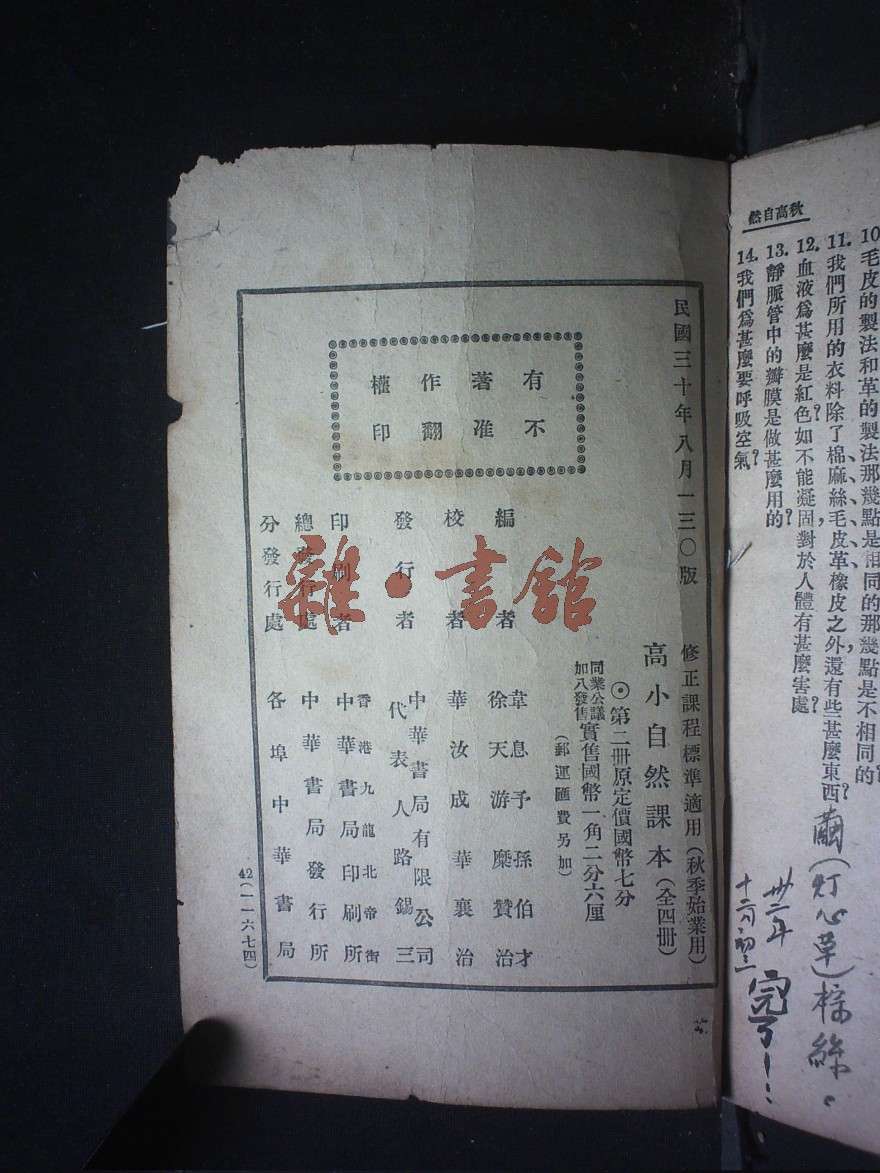 秋高自然
10. 毛皮的製法和革的製法那幾點是相同的那幾點是不相同的?
11. 我們所用的衣料除了棉、麻、絲、毛、皮、革、橡皮之外,還有些甚麼東西?
繭(灯心草)棕絲。
12. 血液爲甚麼是紅色?如不能凝固,對於人體有甚麼害處?
13. 靜脈管中的瓣膜是做甚麼用的?
14. 我們爲甚麼要呼吸空氣?
卅二年
十二月初二
完了!
民國三十年八月一三〇版
修正課程標準適用(秋季始業用)
高小自然課本(全四冊)
⊙第二冊原定價國幣七分
同業公議
加八發售
實售國幣一角二分六厘
(郵運匯費另加)
有著作權
不准翻印
編者
韋息予 孫伯才
徐天游 糜贊治
校者
華汝成 華襄治
發行者
中華書局有限公司
代表人路錫三
印刷者
香港九龍北帝街
中華書局印刷所
總發行處
中華書局發行所
分發行處
各埠中華書局
42(一一六七四)
雜·書館